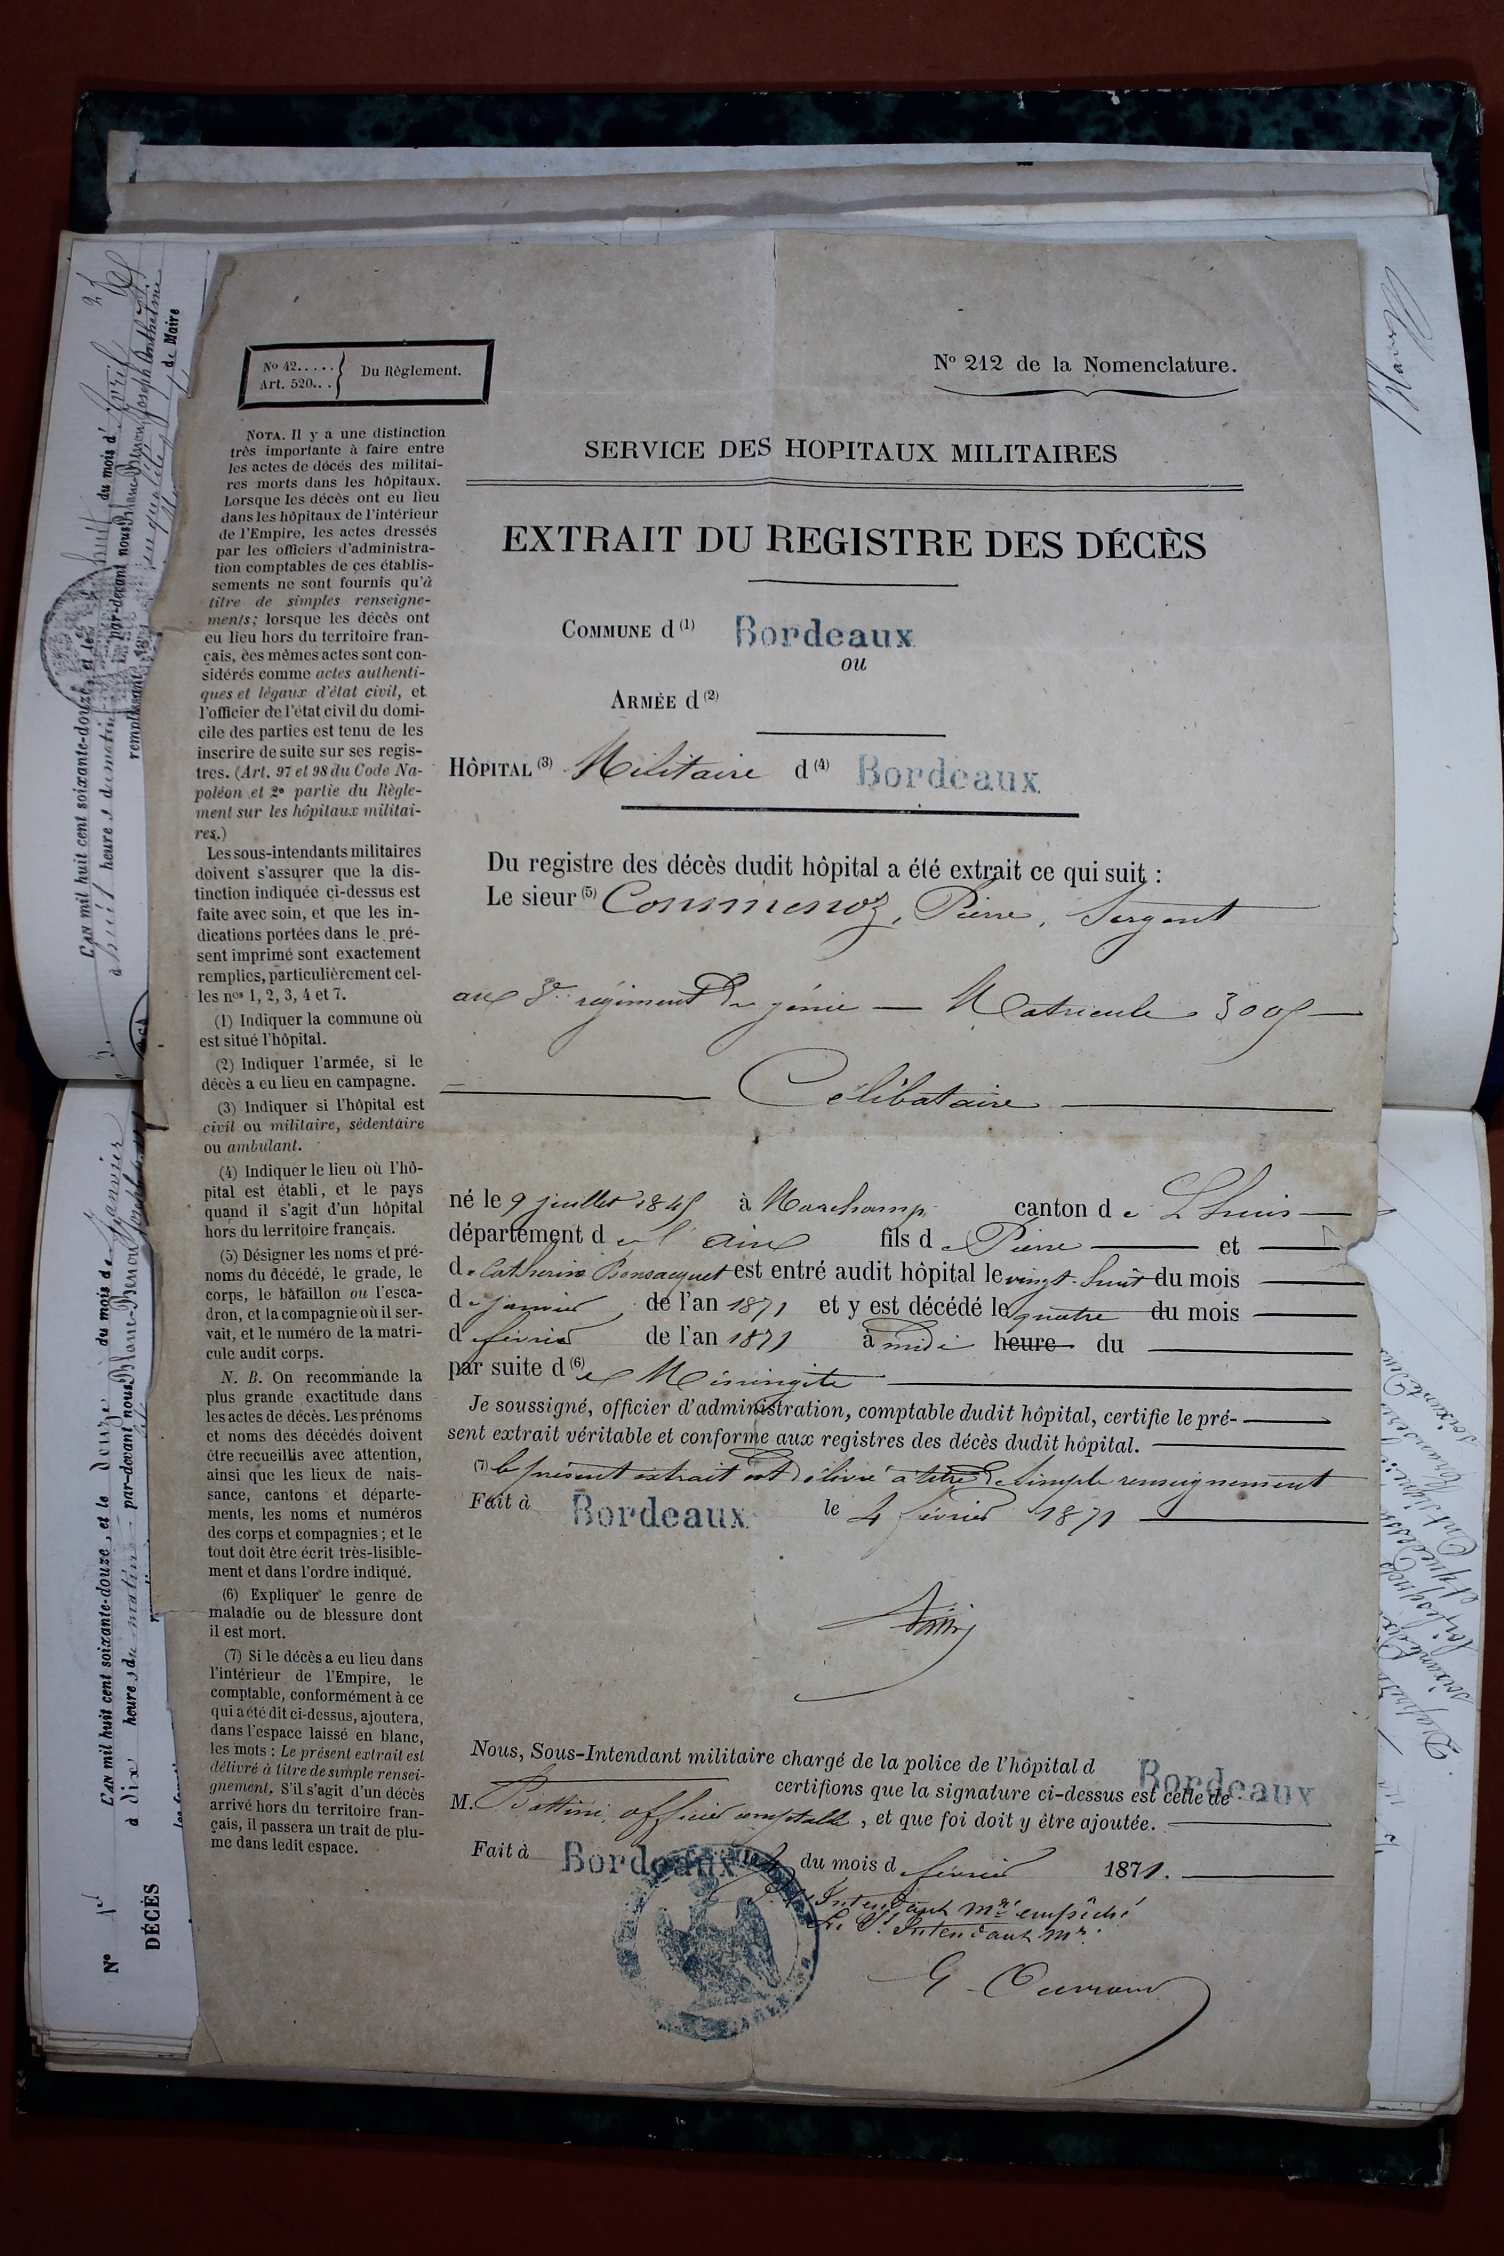 No 42.....
Art. 520...
Du Règlement.
No 212 de la Nomenclature.
NOTA. Il y a une distinction
très importante à faire entre
les actes de décés des militai-
res morts dans les hôpitaux.
Lorsque les décès ont eu lieu
dans les hôpitaux de l'intérieur
de l'Empire, les actes dressés
par les officiers d'administra-
tion comptables de ces établis-
sements ne sont fournis qu'à
titre de simples renseigne-
ments; lorsque les décès ont
eu lieu hors du territoire fran-
çais, ces mêmes actes sont con-
sidérés comme actes authenti-
ques et légaux d'état civil, et
l'officier de l'état civil du domi-
cile des parties est tenu de les
inscrire de suite sur ses regis-
tres. (Art. 97 et 98 du Code Na-
poléon et 2e partie du Règle-
ment sur les hôpitaux militai-
res.)
Les sous-intendants militaires
doivent s'assurer que la dis-
tinction indiquée ci-dessus est
faite avec soin, et que les in-
dications portées dans le pré-
sent imprimé sont exactement
remplies, particulièrement cel-
les nos 1, 2, 3, 4 et 7.
(1) Indiquer la commune où
est situé l'hôpital.
(2) Indiquer l'armée, si le
décès a eu lieu en campagne.
(3) Indiquer si l'hôpital est
civil ou militaire, sédentaire
ou ambulant.
(4) Indiquer le lieu où l'hô-
pital est établi, et le pays
quand il s'agit d'un hôpital
hors du territoire français.
(5) Désigner les noms et pré-
noms du décédé, le grade, le
corps, le bataillon ou l'esca-
dron, et la compagnie où il ser-
vait, et le numéro de la matri-
cule audit corps.
N. B. On recommande la
plus grande exactitude dans
les actes de décès. Les prénoms
et noms des décédés doivent
être recueillis avec attention,
ainsi que les lieux de nais-
sance, cantons et départe-
ments, les noms et numéros
des corps et compagnies; et le
tout doit être écrit très-lisible-
ment et dans l'ordre indiqué.
(6) Expliquer le genre de
maladie ou de blessure dont
il est mort.
(7) Si le décès a eu lieu dans
l'intérieur de l'Empire, le
comptable, conformément à ce
qui a été dit ci-dessus, ajoutera,
dans l'espace laissé en blanc,
les mots : Le présent extrait est
délivré à titre de simple rensei-
gnement. S'il s'agit d'un décès
arrivé hors du territoire fran-
çais, il passera un trait de plu-
me dans ledit espace.
SERVICE DES HOPITAUX MILITAIRES
EXTRAIT DU REGISTRE DES DÉCÈS
COMMUNE d(1) Bordeaux
ou
ARMÉE d(2)
HÔPITAL(3) Militaire d(4) Bordeaux
Du registre des décès dudit hôpital a été extrait ce qui suit :
Le sieur(5) Conmenoz, Pierre, Sergent
au 3e régiment du génie — Matricule 3005 —
Célibataire
né le 9 juillet 1845 à Marchamp canton de Lhuis
département de l'ain fils de Pierre et
de Catherine Bonsacquet est entré audit hôpital le vingt-huit du mois
de janvier de l'an 1871 et y est décédé le quatre du mois
de février de l'an 1871 à midi heure du
par suite d(6)e Méningite
Je soussigné, officier d'administration, comptable dudit hôpital, certifie le pré-
sent extrait véritable et conforme aux registres des décès dudit hôpital.
(7) le présent extrait est délivré à titre de simple renseignement
Fait à Bordeaux le 4 février 1871
Nous, Sous-Intendant militaire chargé de la police de l'hôpital d Bordeaux
certifions que la signature ci-dessus est celle de
M. Battini, officier comptable, et que foi doit y être ajoutée.
Fait à Bordeaux le 4 du mois de février 1871.
Intendant mre empêché
Le S. Intendant mre.
L'AN mil huit cent soixante-douze, et le huit du mois d'avril
à huit heures du matin par-devant nous Blanc-Benon Joseph Anthelme
remplissant en qualité de Maire
L'AN mil huit cent soixante-douze, et le douze du mois de janvier
à dix heures du matin par-devant nous Blanc-Benon Joseph
No 1er
DÉCÈS